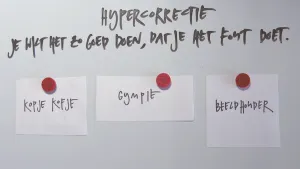 HYPERCORRECTIE
JE WILT HET ZO GOED DOEN, DAT JE HET FOUT DOET.
KOPJE KOFJE
GYMPIE
BEELDHOUDER